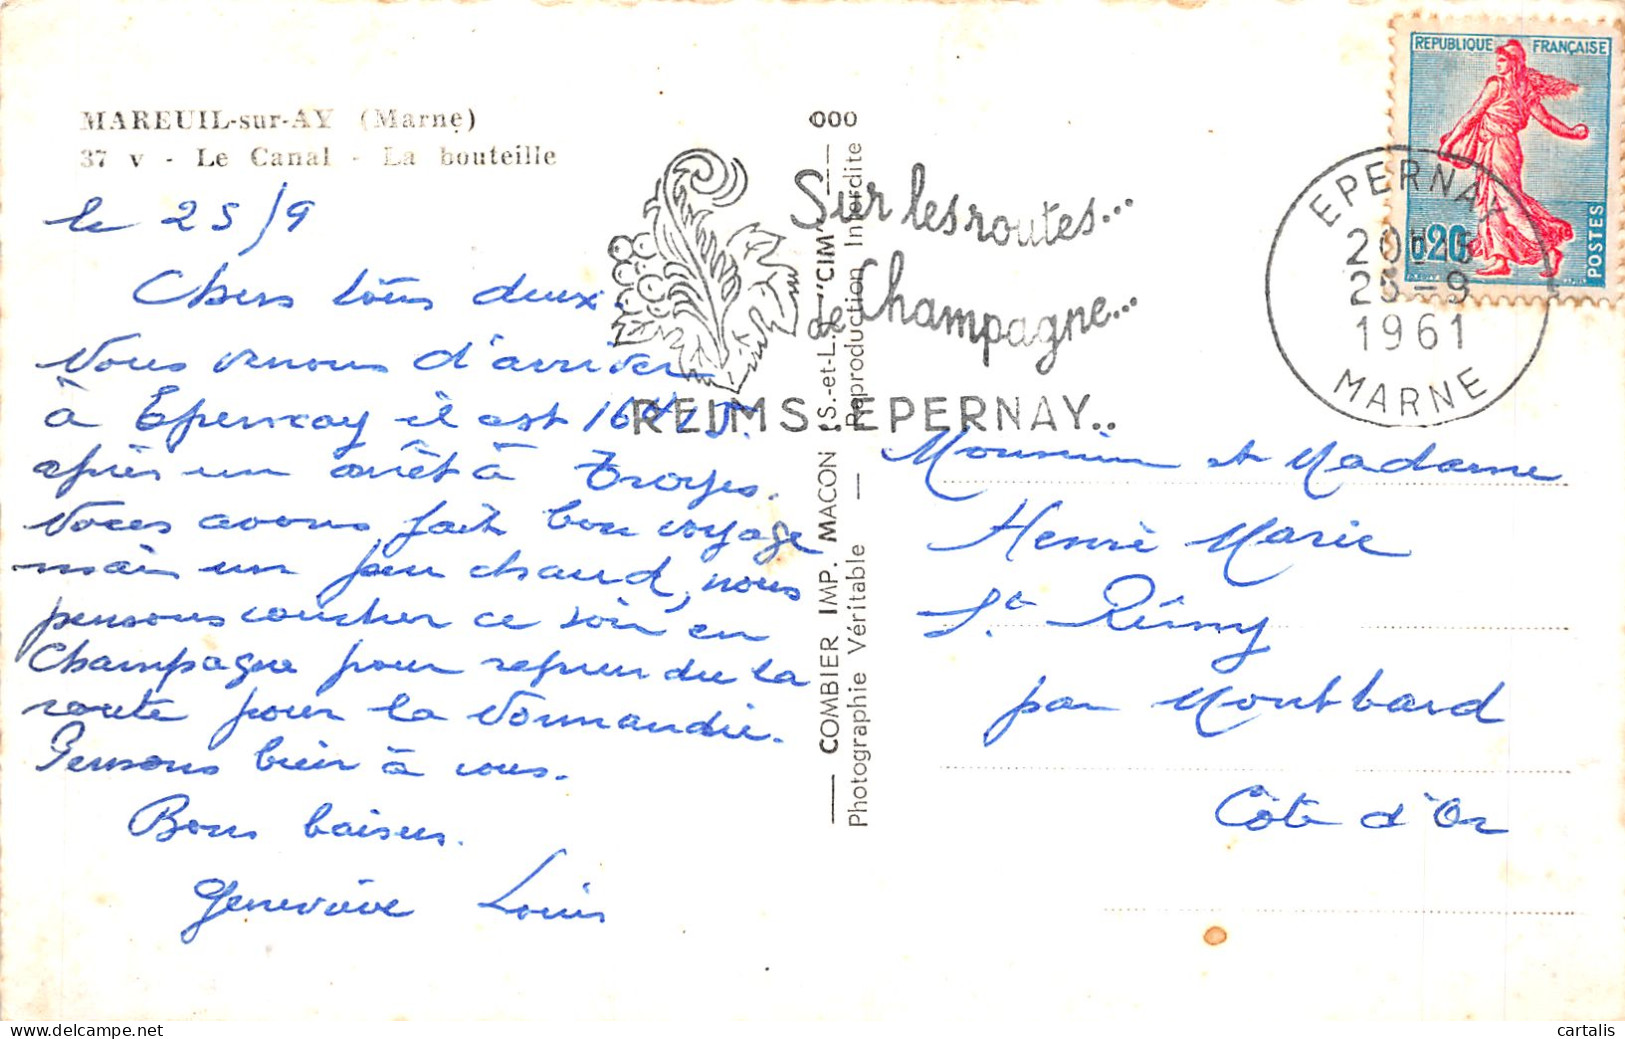 MAREUIL-sur-AY (Marne)
37 v - Le Canal - La bouteille
le 25/9
Chers tous deux.
Nous venons d'arriver
à Epernay il est 16h15.
après un arrêt à Troyes.
Nous avons fait bon voyage
mais un peu chaud, nous
pensons coucher ce soir en
Champagne pour reprendre la
route pour la Normandie.
Pensons bien à vous.
Bons baisers.
Geneviève Louis
000
COMBIER IMP. MACON (S.-et-L.) "CIM"
Photographie Véritable — Reproduction Interdite
Sur les routes...
de Champagne...
REIMS EPERNAY..
REPUBLIQUE FRANÇAISE
0,20
POSTES
EPERNAY
20H15
25-9
1961
MARNE
Monsieur et Madame
Henri Marie
St Rémy
par Montbard
Côte d'Or
cartalis